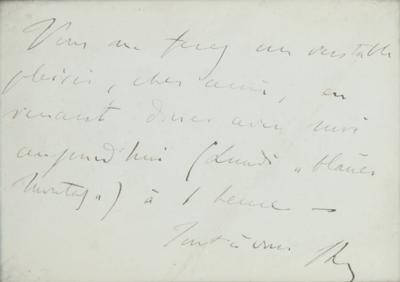 Vous me ferez un véritable
plaisir, cher ami, en
venant diner avec moi
aujourd'hui (Lundi „blauer
Montag") à 1 heure —
Tout à vous